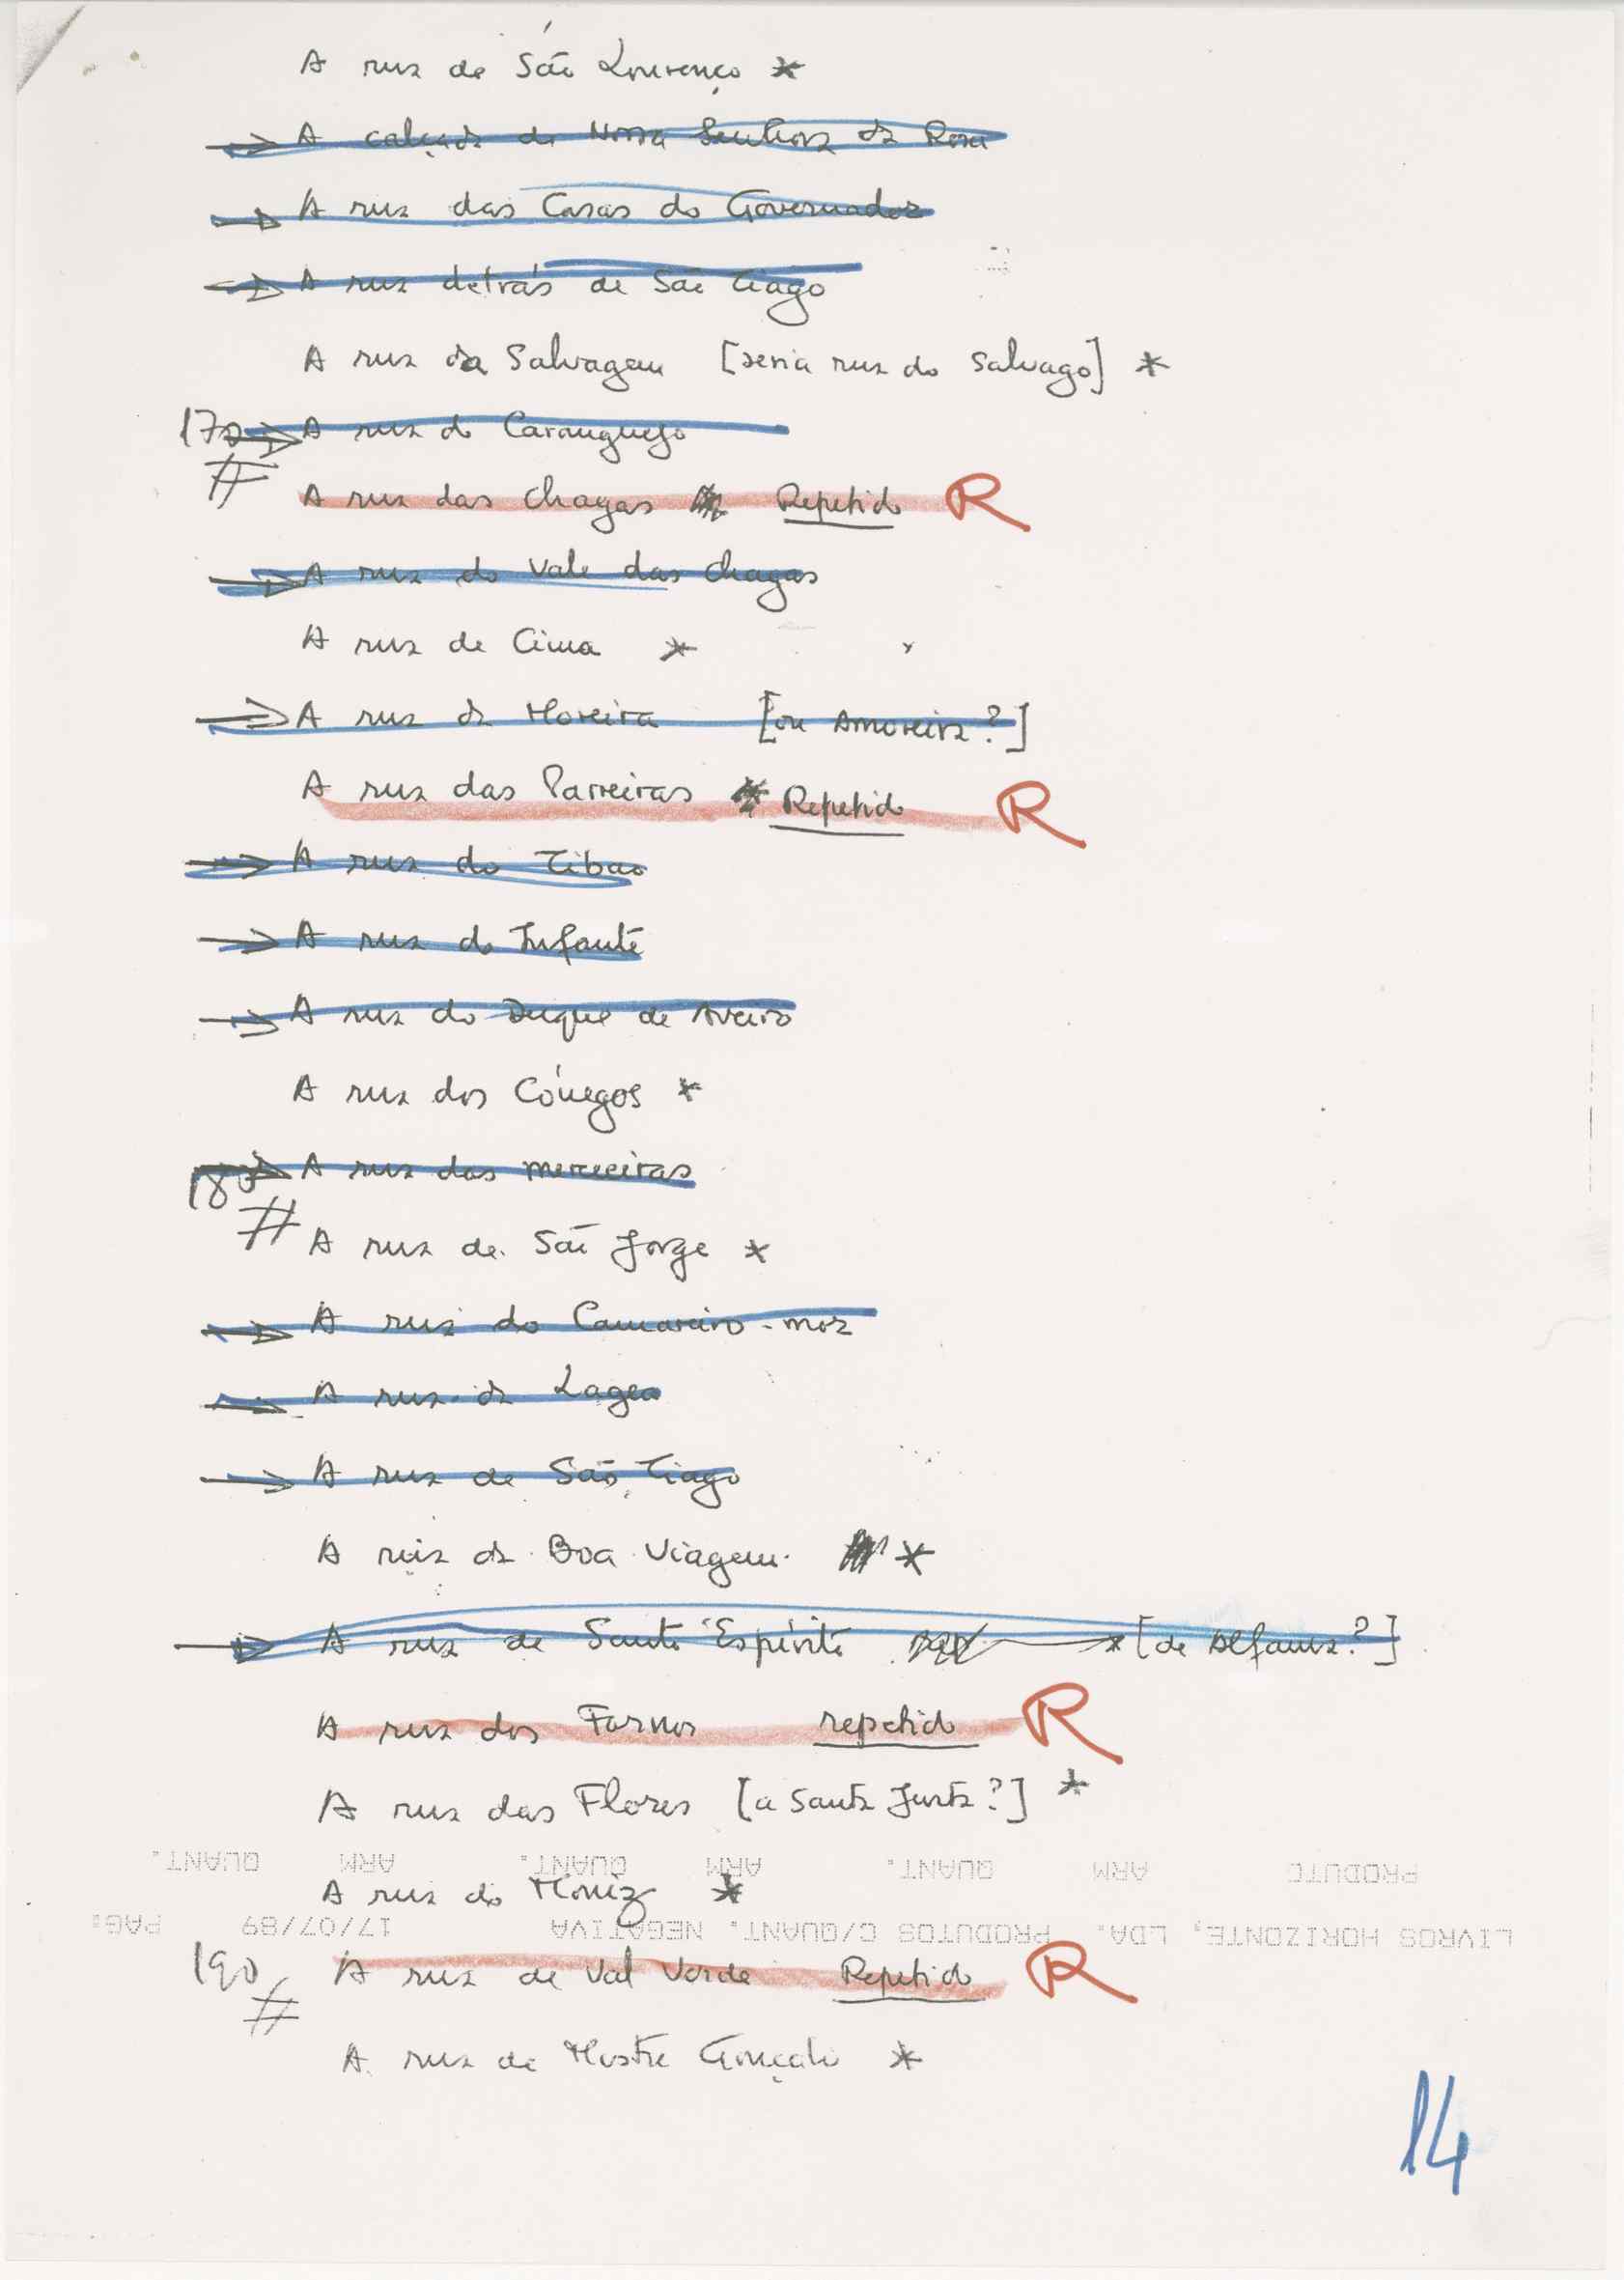 A rua de São Lourenço *
⇒ A calçada de Nossa Senhora da Rosa
⇒ A rua das Casas do Governador
⇒ A rua detrás de São Tiago
A rua da Salvagem [seria rua do Salvago] *
170 ⇒ A rua do Caranguejo
# A rua das Chagas Repetido R
⇒ A rua do Vale das Chagas
A rua de Cima *
⇒ A rua da Moreira [ou Amoreira?]
A rua das Parreiras * Repetido R
⇒ A rua do Tibao
⇒ A rua do Infante
⇒ A rua do Duque de Aveiro
A rua dos Cónegos *
180 ⇒ A rua das merceeiras
# A rua de São Jorge *
⇒ A rua do Camareiro-mor
⇒ A rua da Lagea
⇒ A rua de São Tiago
A rua da Boa Viagem *
⇒ A rua de Santo Espírito [de Alfama?]
A rua dos Fornos repetido R
A rua das Flores [a Santa Justa?] *
PRODUTO ARM QUANT. ARM QUANT. ARM QUANT.
A rua do Moniz *
LIVROS HORIZONTE, LDA. PRODUTOS C/QUANT. NEGATIVA 17/07/89 PAG:
190 A rua de Val Verde Repetido R
#
A rua de Mestre Gonçalo *
14